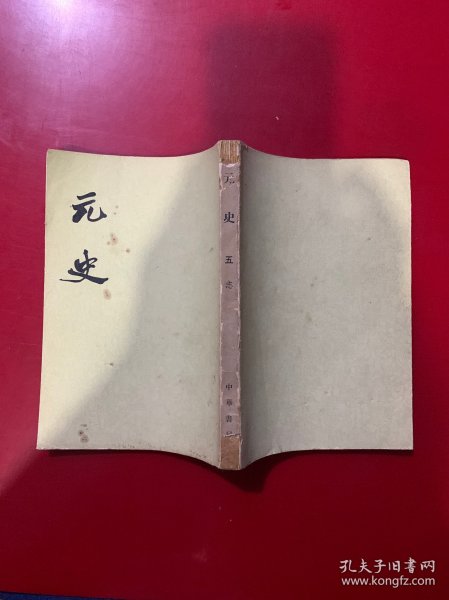 元史
元史 五 志
中華書局
孔夫子旧书网
www.kongfz.com